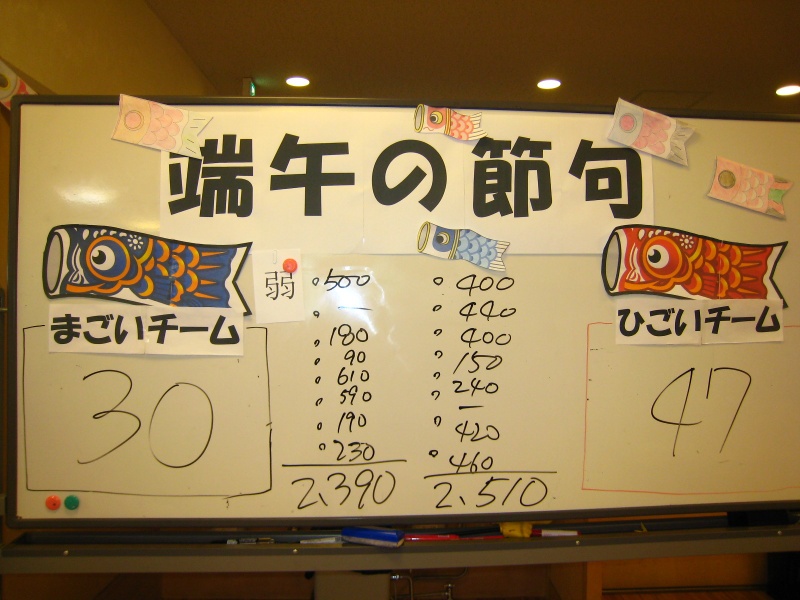 端午の節句
まごいチーム
30
弱
500
-
180
90
610
590
190
230
2,390
400
440
400
150
240
-
420
460
2,510
ひごいチーム
47